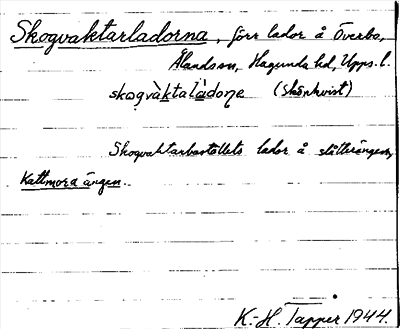 Skogvaktarladorna, förr lador å Överbo,
Ålandssn, Hagunda hd, Upps. l.
skogvàktalàdoṇe (Skönkvist)
Skogvaktarbostallets lador å slåtterängen
Kattmora ängen.
K.-H. Tapper 1944.